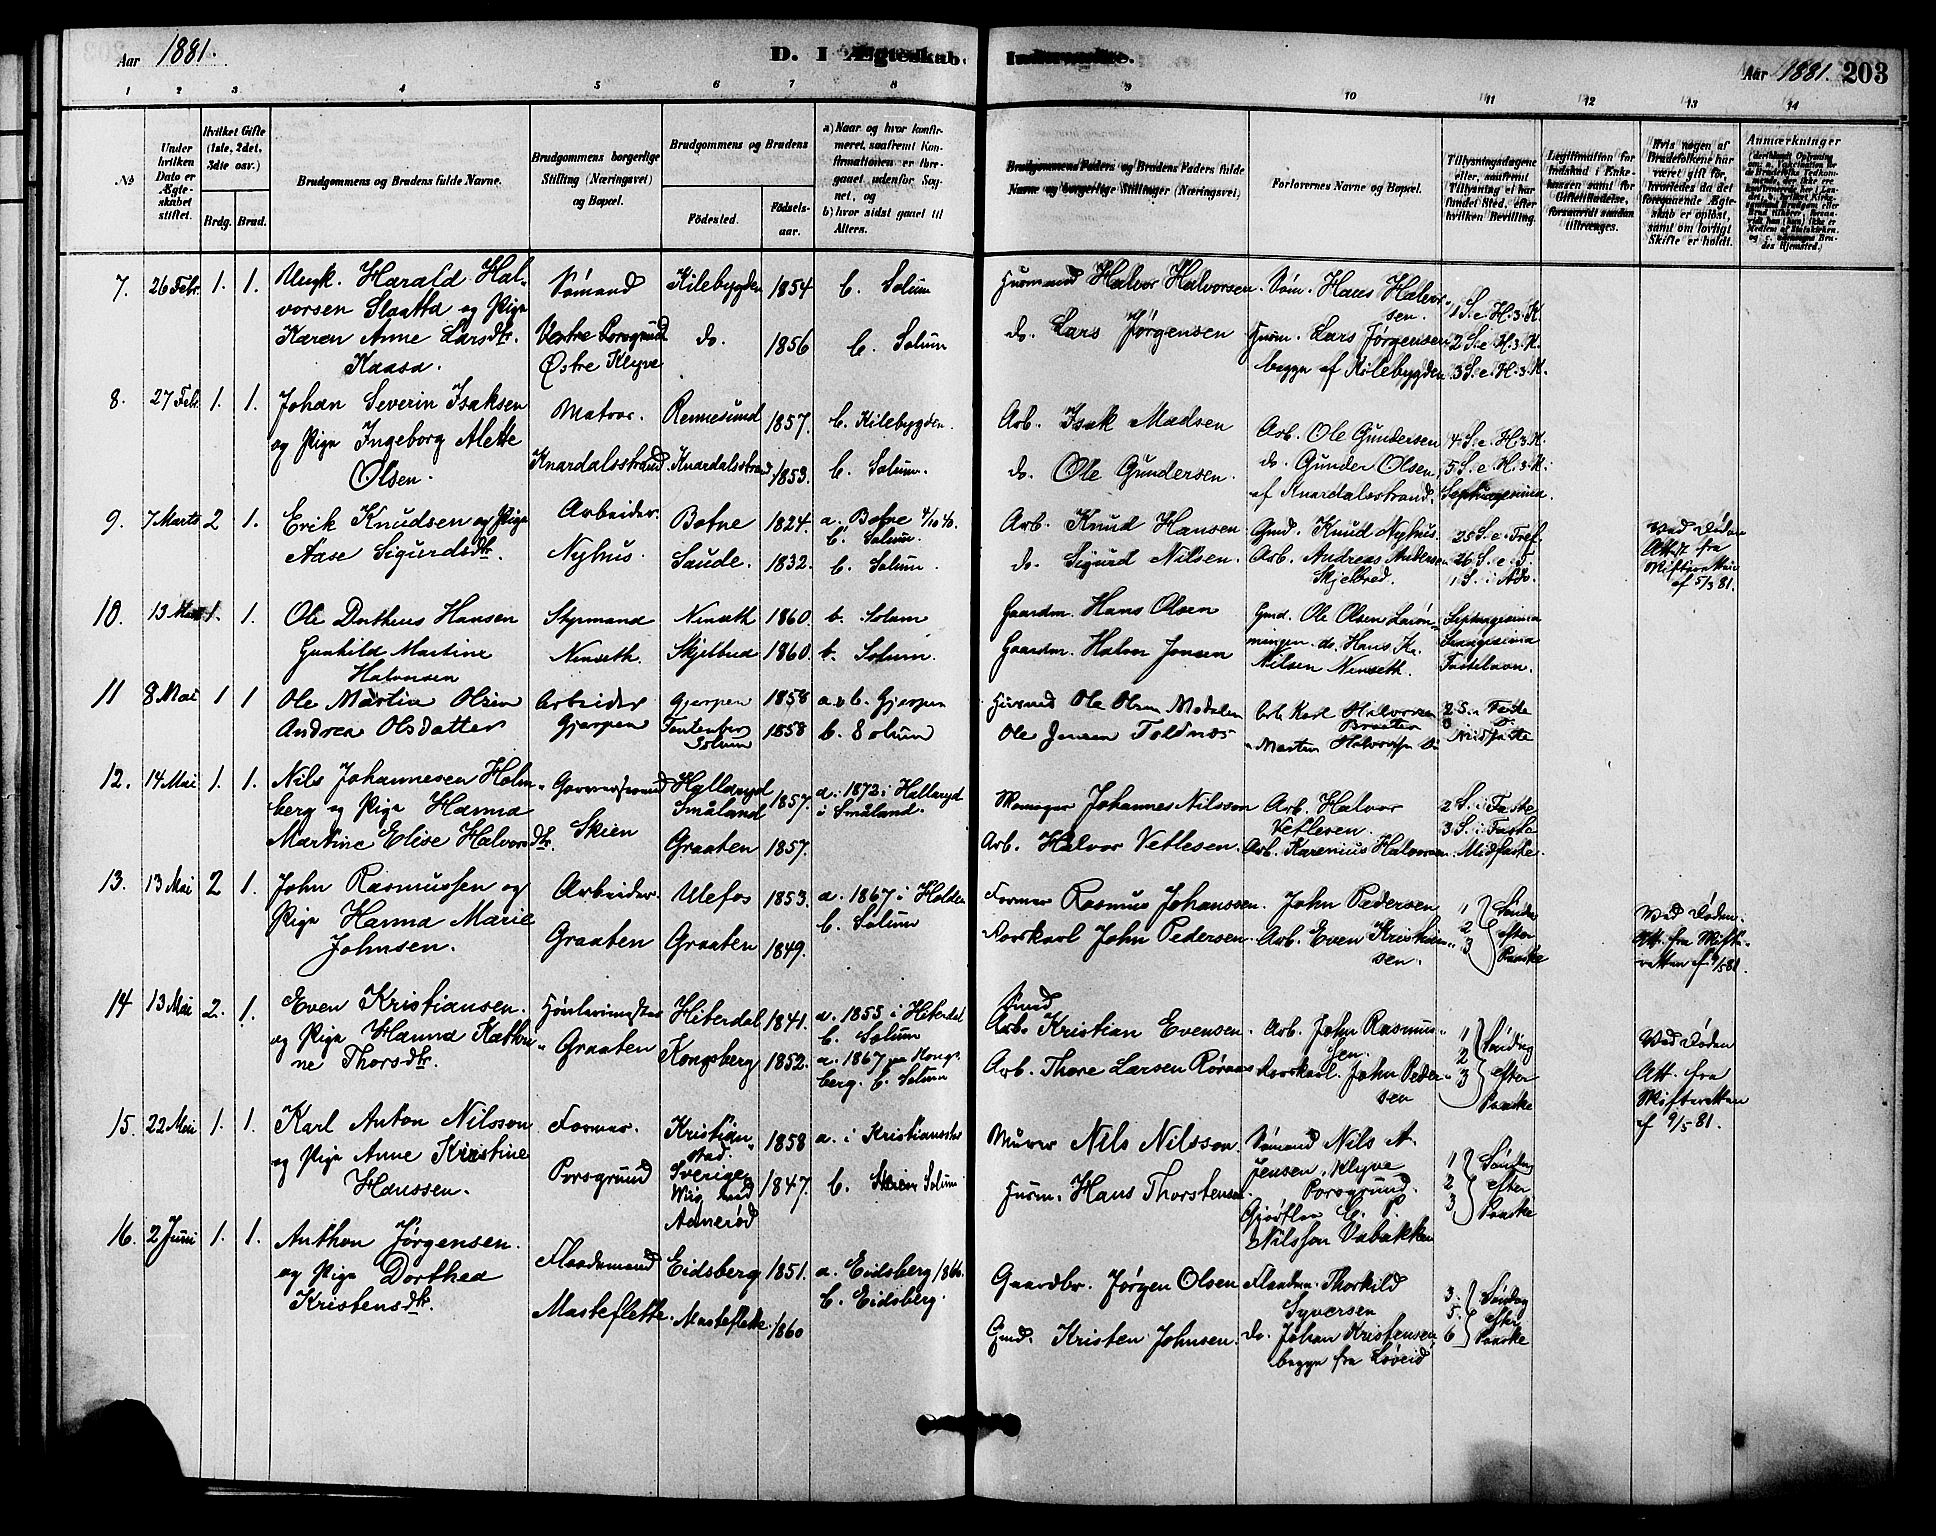 Aar 1881.
D. I Ægteskab.
Indtrædte.
Aar 1881. 203
1 2 3. 4 5 6 7 8
9 10 11 12 13 14
No
Under hvilken Dato er Ægteskabet stiftet.
Hvilket Gifte (1ste, 2det, 3dte osv.)
Brdg. Brud.
Brudgommens og Brudens fulde Navne.
Brudgommens borgerlige Stilling (Næringsvei) og Bopæl.
Brudgommens og Brudens
Fødested. Fødselsaar.
a) Naar og hvor konfirmeret, saafremt Konfirmationen er foregaaet udenfor Sognet, og
b) hvor sidst gaaet til Alters.
Brudgommens Faders og Brudens Faders fulde Navne og borgerlige Stillinger (Næringsvei)
Forlovernes Navne og Bopæl.
Tillysningsdagene eller, saafremt Tillysning ei har fundet Sted, efter hvilken Bevilling.
Legitimation for Indskud i Enkekassen samt for Giftetilladelse, forsaavidt saadan tiltrænges.
Hvis nogen af Brudefolkene har været gift før, hvorledes da det foregaaende Ægteskab er opløst, samt om lovligt Skifte er holdt.
Anmærkninger
7. 26 Febr. 1. 1. Ungk. Harald Halvorsen Slaatta og Pige Karen Anne Larsdtr. Kaasa.
Sømand Vestre Porsgrund Østre Klyve
Kilebygden 1854 b. Solum
do. 1856 b. Solum
Husmand Halvor Halvorsen.
do. Lars Jørgensen
Søm. Hans Halvorsen.
Husm. Lars Jørgensen begge af Kilebygden
1 S. e. H. 3. K.
2 S. e. H. 3. K.
3 S. e. H. 3. K.
8. 27 Febr. 1. 1. Johan Severin Isaksen og Pige Ingeborg Alette Olsen.
Matros. Knardalsstrand
Rennesund 1857. b. Kilebygden.
Knardalsstrand 1853. b. Solum.
Arb. Isak Madsen
do. Ole Gundersen.
Arb. Ole Gundersen
do. Gunder Olsen, af Knardalsstrand.
4 S. e. H. 3. K.
5 S. e. H. 3. K.
Septuagesima.
9. 7 Marts 2 1. Erik Knudsen og Pige Aase Sigurdsdtr.
Arbeider. Nyhus.
Botne 1824. a. Botne 4/10 40. b. Solum.
Saude. 1832. b. Solum.
Arb. Knud Hansen
do. Sigurd Nilsen.
Gmd. Knud Nyhus.
Arb. Andreas Andersen Skjelbred.
25 S. e. Tref.
26 S. e. T.
1 S. i Adv.
Ved Døden Att. fra Skifteretten af 5/3 81.
10. 13 1. 1. Ole Dortheus Hansen
Gunhild Martine Halvorsen
Styrmand Nenseth.
Nenseth 1860. b. Solum
Skjelbred 1860. b. Solum.
Gaardm. Hans Olsen
Gaardm. Halvor Jonsen
Gmd. Ole Olsen
do. Hans Kr. Nilsen Nenseth.
Septuagesima
Sexagesima
Fastelavn.
11 8 Mai 1 1 Ole Martin Olsen
Andrea Olsdatter
Arbeider Gjerpen
Gjerpen 1858 a. b. Gjerpen
Solum 1858 b. Solum
Husmd Ole Olsen Modalen
Ole Jensen Foldnes
Arb. Karl Halvorsen Braaten
Martin Halvorsen
2 S. i Faste
3 D.
Midfaste
12. 14 Mai 1. 1. Nils Johannesen Holmberg og Pige Hanna Martine Elise Halvorsdtr.
Skien
Hallaryd Småland 1857. a. 1872 i Hallaryd i Småland.
Graaten 1857.
Skomager Johannes Nilsson
Arb. Halvor Vetlesen.
Arb. Halvor Vetlesen.
Arb. Karenius Halvorsen.
2 S. i Faste
3 S. i Faste
Midfaste.
13. 13 Mai 2 1. John Rasmussen og Pige Hanna Marie Johnsen.
Arbeider. Graaten
Ulefos 1853. a. 1867 i Holden b. Solum
Graaten 1849.
Former Rasmus Johanssen.
Forskarl John Pedersen.
John Pedersen
Arb. Even Kristiansen.
1 2 3 Søndag efter Paaske
Ved Døden. Att. fra Skifteretten af 9/5 81.
14 13 Mai 2. 1. Even Kristiansen. og Pige Hanna Kathrine Thorsdtr.
Graaten
Hiterdal 1841. a. 1855 i Hiterdal b. Solum
Kongsberg 1852. a. 1867 paa Kongsberg. b. Solum
Smed
Arb. Kristian Evensen.
Arb. Thore Larsen Røraas
Arb. John Rasmussen.
Forskarl. John Pedersen
1 2 3 Søndag efter Paaske
Ved Døden Att. fra Skifteretten af 9/5 81.
15. 22 Mai 1. 1. Karl Anton Nilsson og Pige Anne Kristine Hanssen.
Former. Porsgrund
Kristianstad. Sverige 1858 a. i Kristianstad
1847. b. Solum.
Murer Nils Nilsson.
Husm. Hans Thorstensen.
Sømand Nils A. Jensen, Klyve Porsgrund.
Nilsson Vabakken
1 2 3 Søndag efter Paaske
16. 2 Juni 1. 1. Anthon Jørgensen. og Pige Dorthea Kristensdtr.
Flaademand Masteflette.
Eidsberg 1851. a. Eidsberg 1866. b. Eidsberg.
Masteflette. 1860
Gaardbr. Jørgen Olsen
Gmd. Kristen Johnsen.
Flaadm. Thorkild Syversen
do. Johan Kristensen begge fra Løveid
3. 5. 6 Søndag efter Paaske